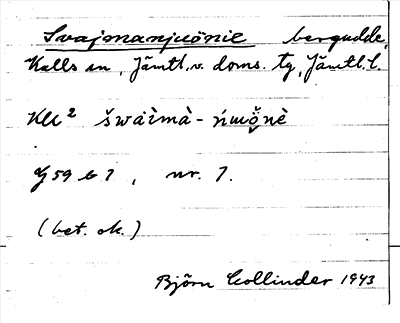 Svajmanjuönie bergudde,
Kalls sn, Jämtl. v. doms. tg, Jämtl. l.
KU² šwäìmà-ńuŏ̬nè
J 59 b 1, nr. 7.
(bet. ok.)
Björn Collinder 1943